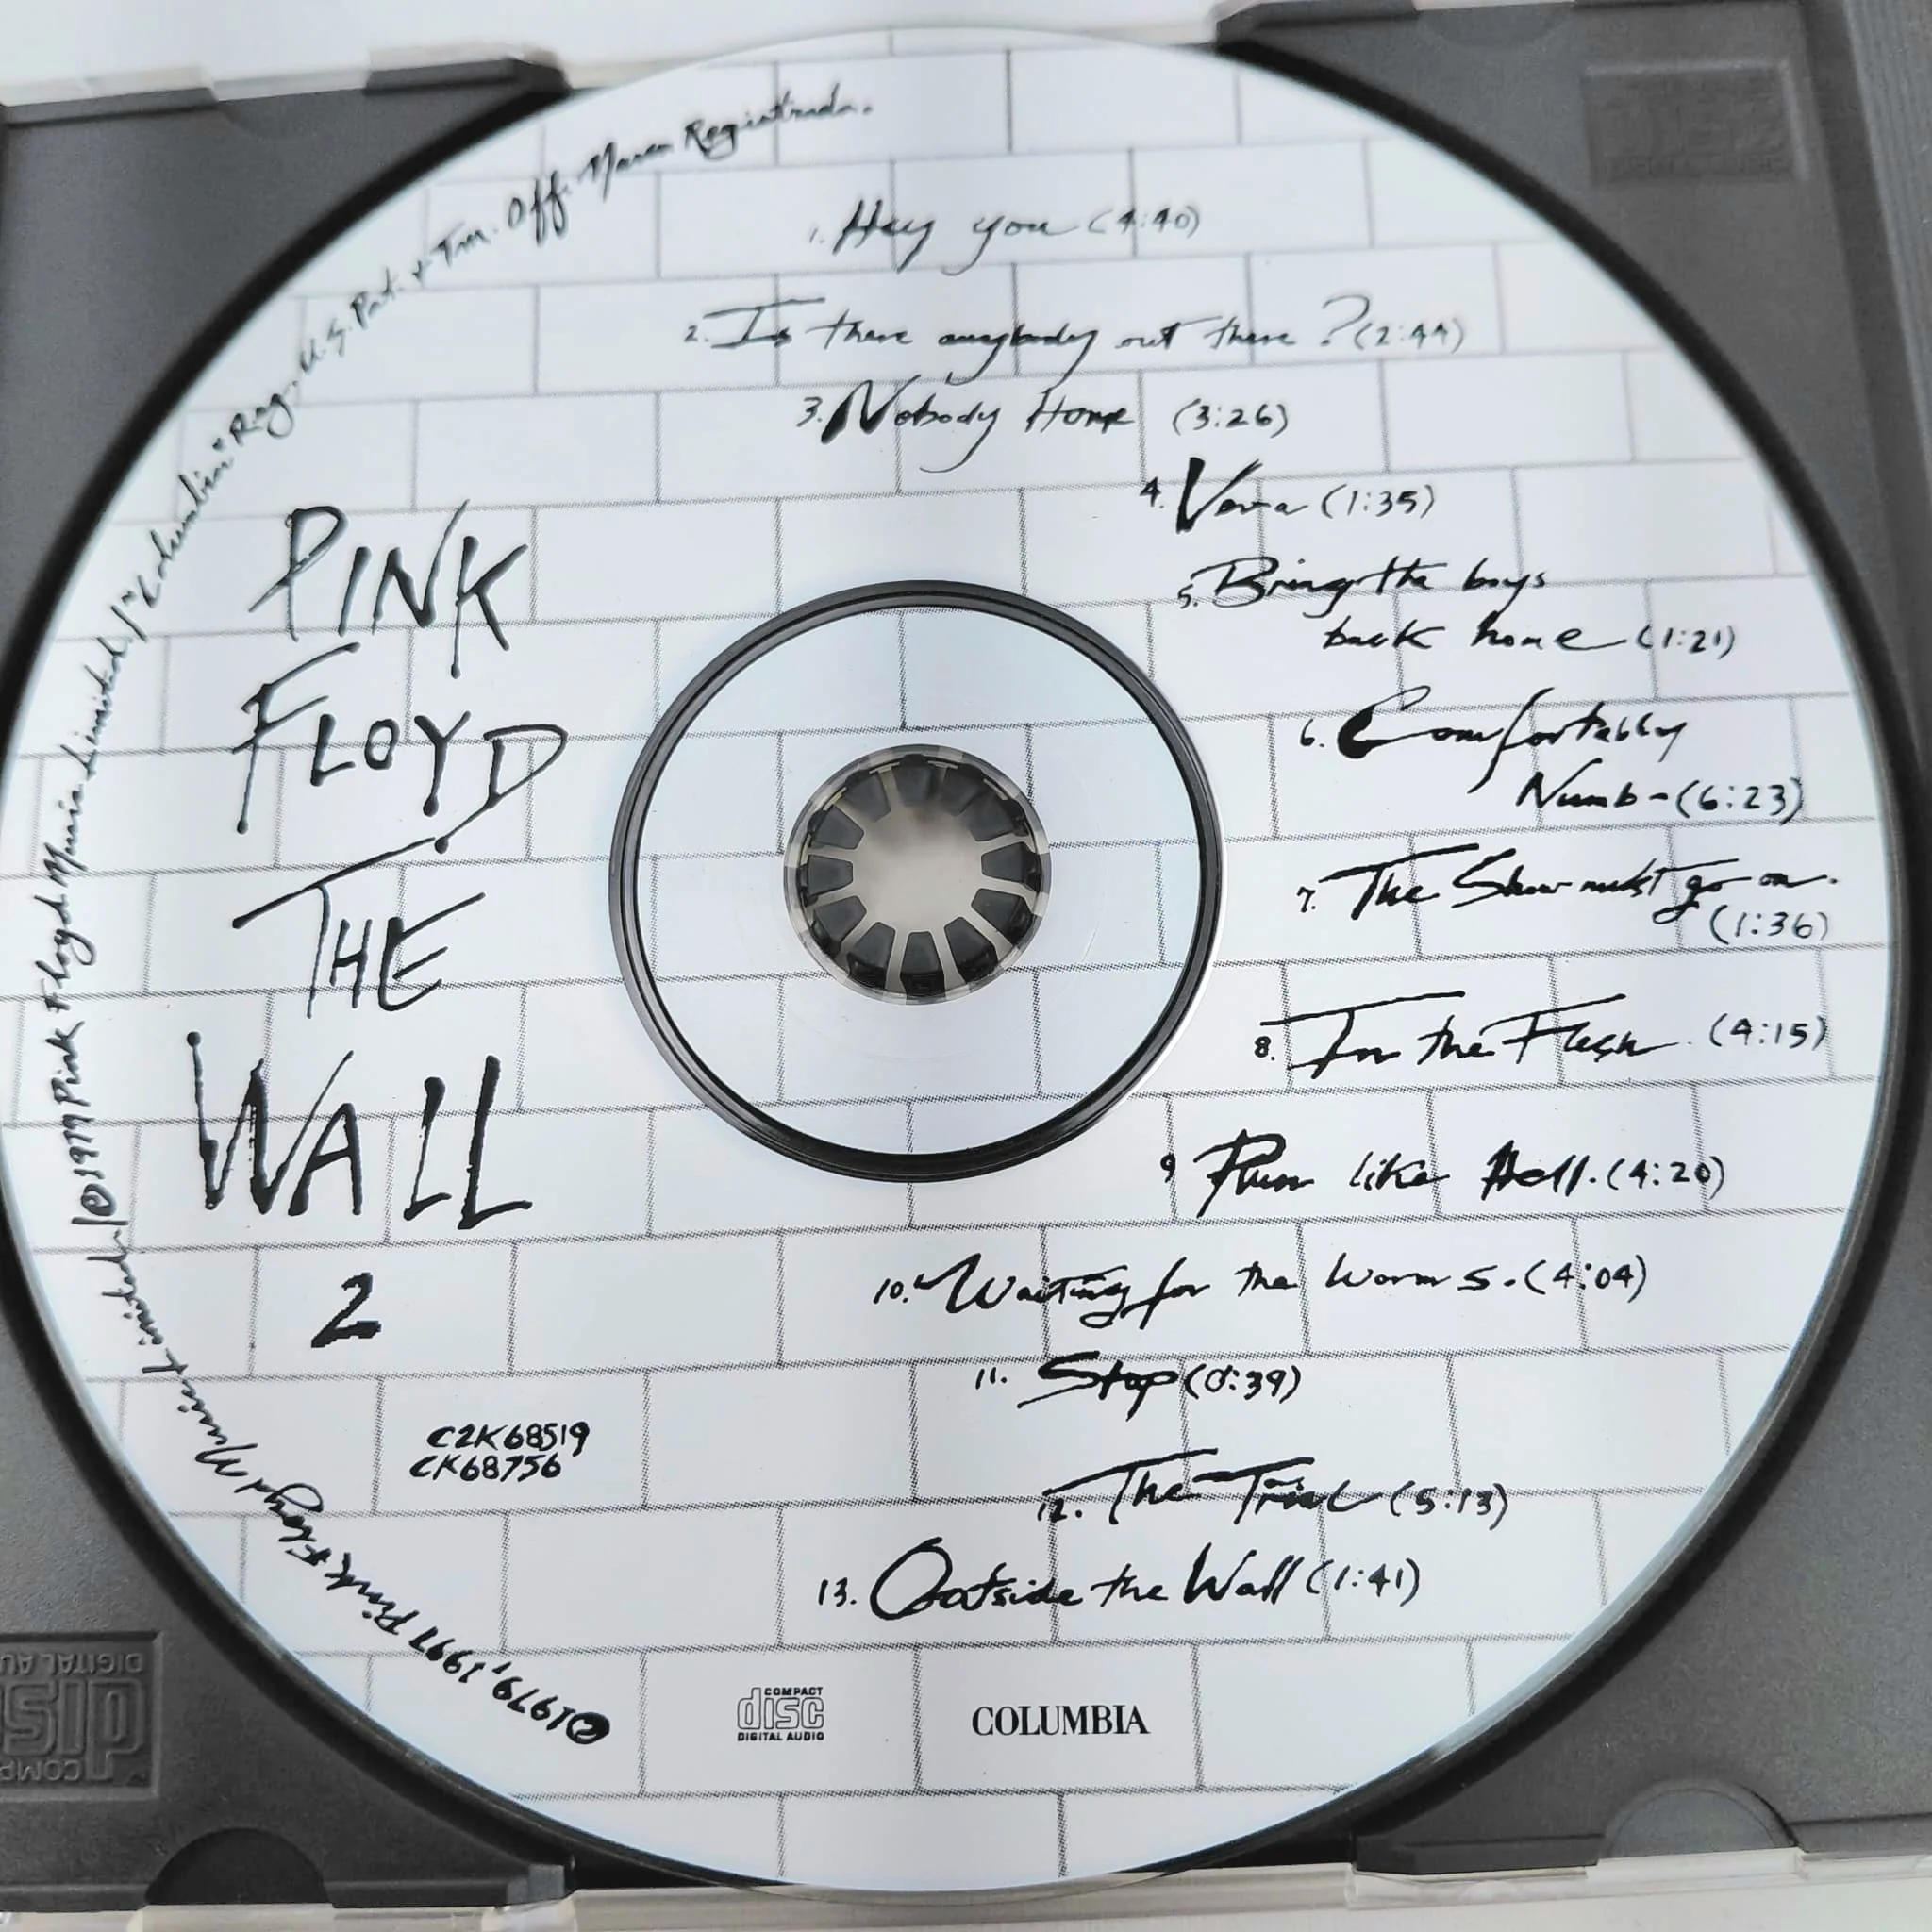 "Columbia" Reg. U.S. Pat. & Tm. Off. Marca Registrada.
℗1979 Pink Floyd Music Limited/
©1979, 1997 Pink Floyd Music Limited.
1. Hey you (4:40)
2. Is there anybody out there? (2:44)
3. Nobody Home (3:26)
4. Vera (1:35)
5. Bring the boys
back home (1:21)
6. Comfortably
Numb - (6:23)
7. The Show must go on.
(1:36)
8. In the Flesh. (4:15)
9 Run like Hell. (4:20)
10. Waiting for the Worms. (4:04)
11. Stop (0:39)
12. The Trial (5:13)
13. Outside the Wall (1:41)
PINK
FLOYD
THE
WALL
2
C2K68519
CK68756
COMPACT
disc
DIGITAL AUDIO
COLUMBIA
COMPA
disc
DIGITAL AU